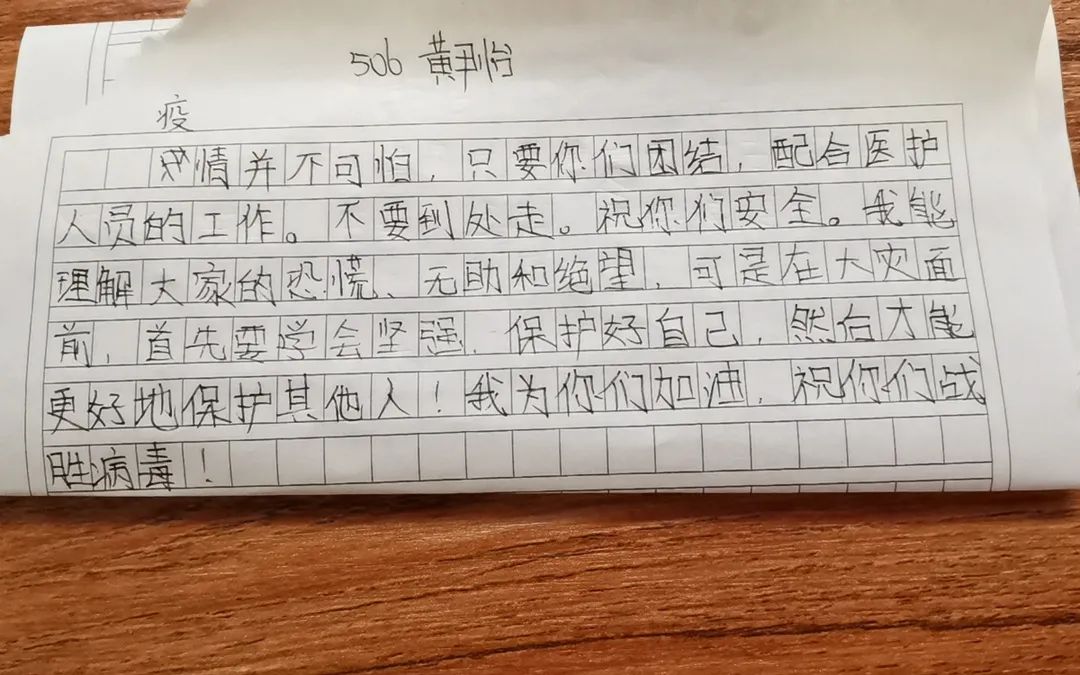 506 黄尹怡
疫
情并不可怕，只要你们团结，配合医护
人员的工作。不要到处走。祝你们安全。我能
理解大家的恐慌、无助和绝望，可是在大灾面
前，首先要学会坚强，保护好自己，然后才能
更好地保护其他人！我为你们加油，祝你们战
胜病毒！